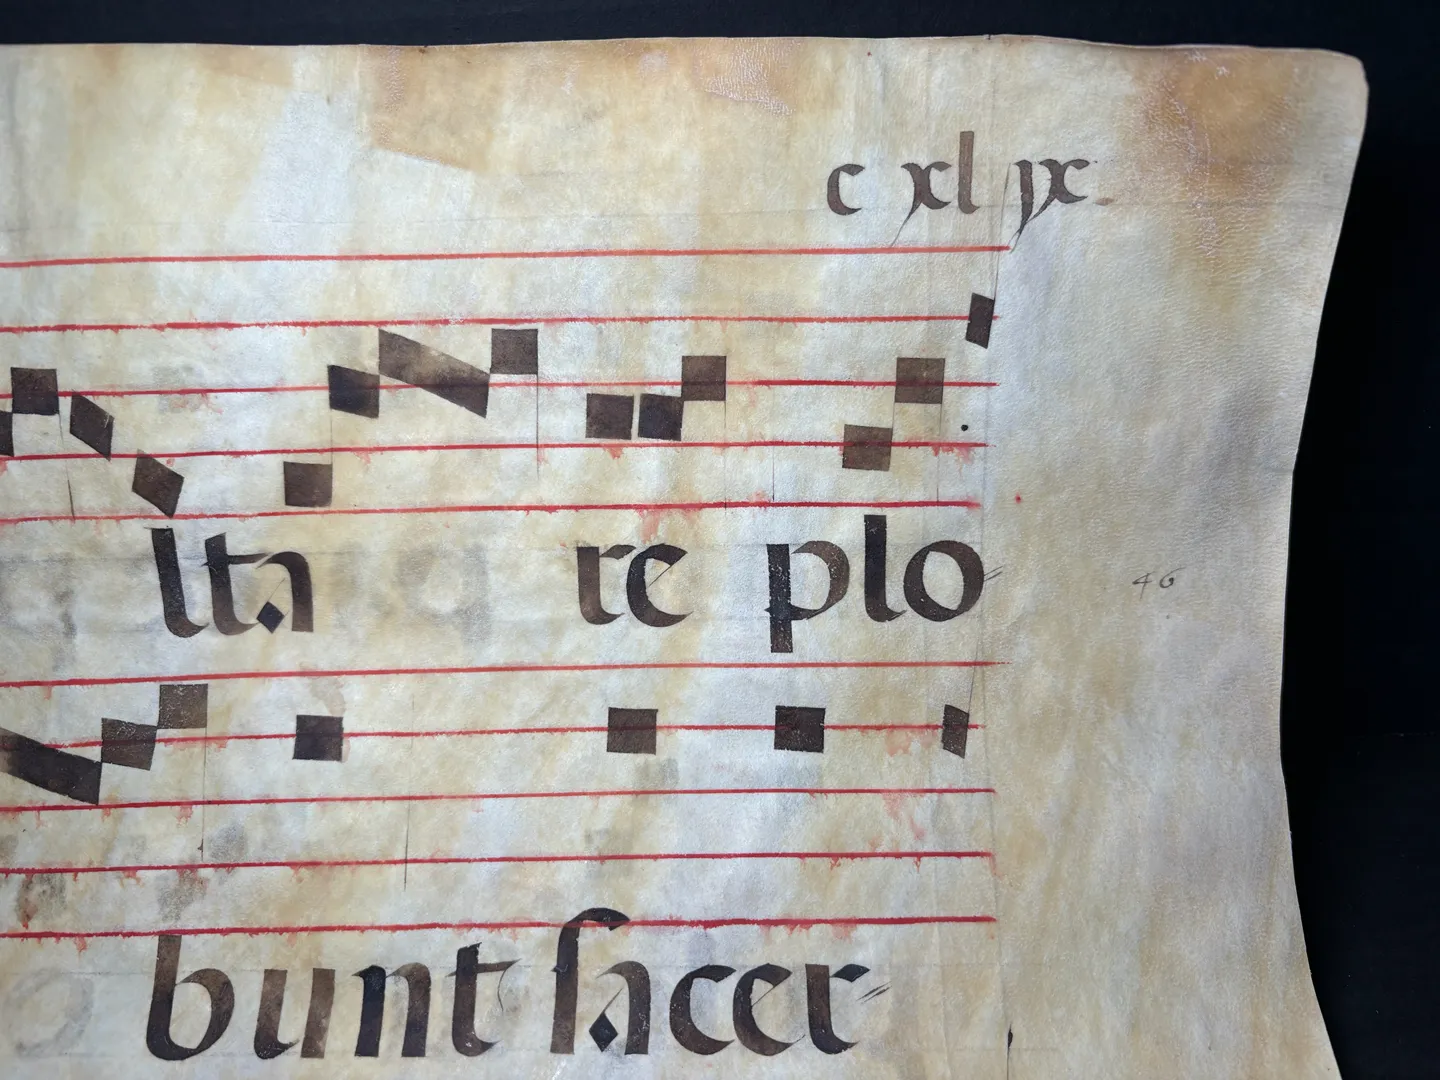 c xl ix
lta re plo
46
bunt sacer